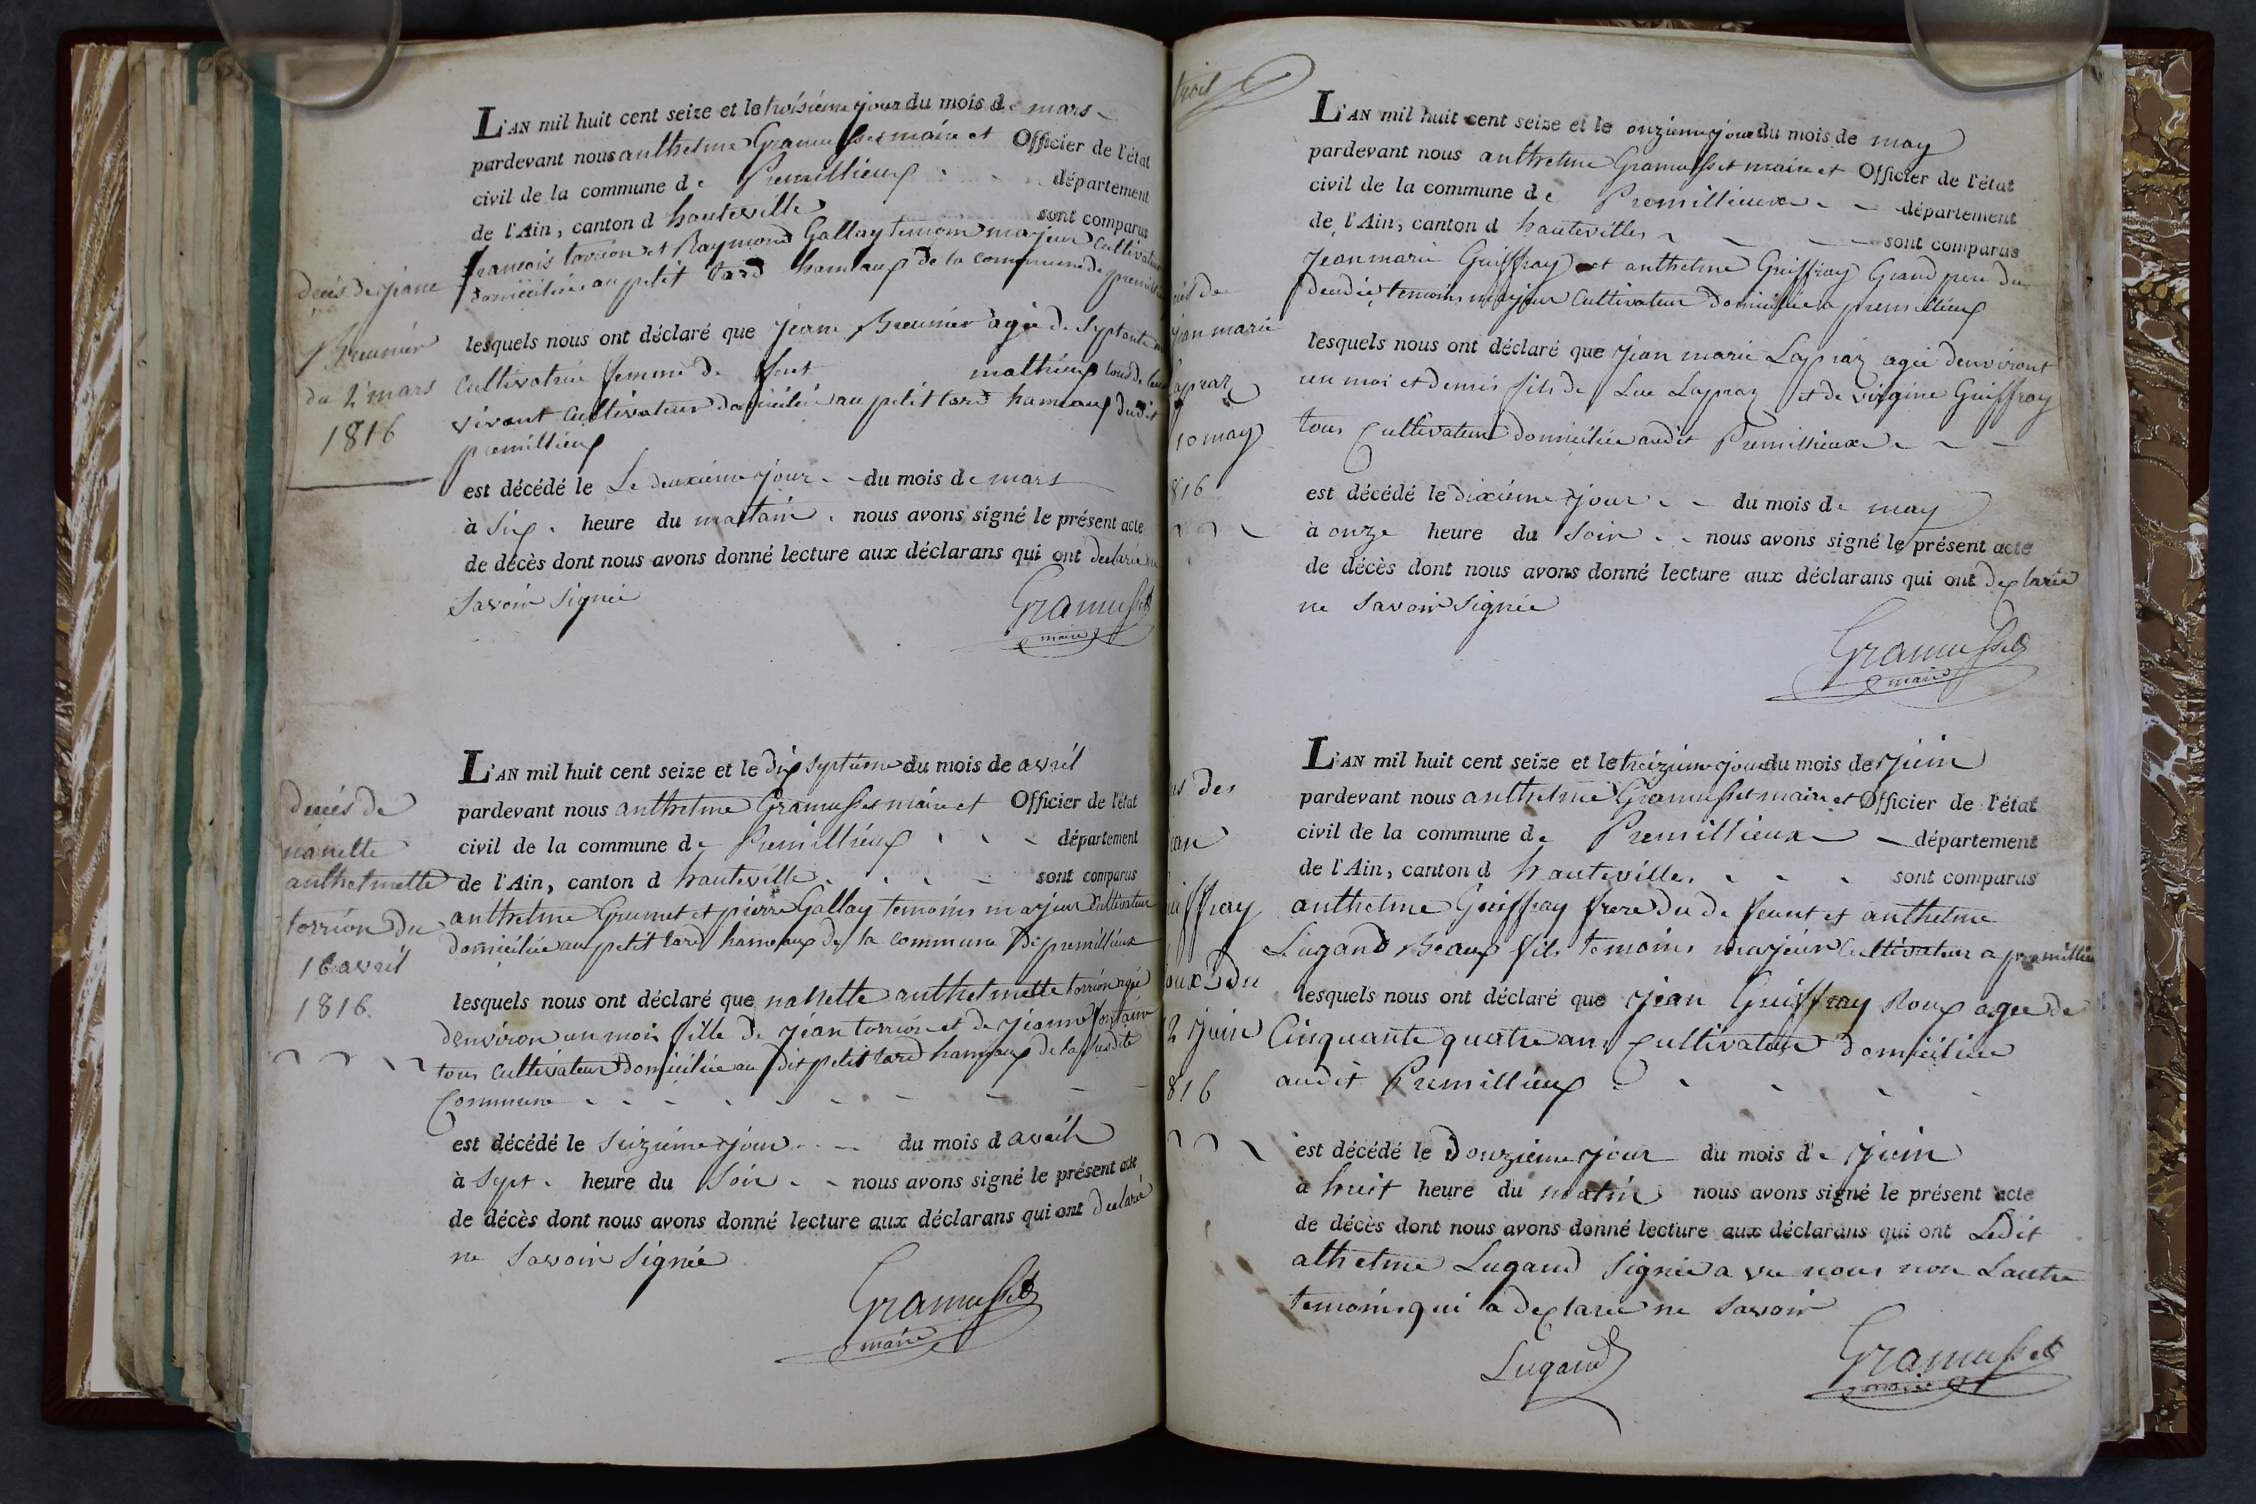 L'AN mil huit cent seize et le troisième jour du mois de mars
pardevant nous anthelme Gramusset maire et Officier de l'état
civil de la commune de Premillieux département
de l'Ain, canton d hauteville sont comparus
francois torrion et Raymond Gallay temoin majeur Cultivateur
domicilié au petit tard hameaux de la commune de
decés de jeane
Breunier
du 2 mars
1816
lesquels nous ont déclaré que jeane Breunier agée de septante
Cultivatrice femme de mathieux tous de
vivant Cultivateur domicilié au petit tard hameaux dudit
premillieux
est décédé le Le deuxième jour du mois de mars
à Six heure du mattain nous avons signé le présent acte
de décès dont nous avons donné lecture aux déclarans qui ont declarée ne
Savoir Signée
Gramusset
maire
L'AN mil huit cent seize et le dix septieme du mois de avril
pardevant nous anthelme Gramusset maire et Officier de l'état
civil de la commune de Premillieux département
de l'Ain, canton d hauteville sont comparus
anthelme Grumet et pierre Gallay temoins majeur Cultivateur
domicilié au petit tard hameaux de la commune de premillieux
decés de
nanette
anthelmette
torrion du
16 avril
1816
lesquels nous ont déclaré que nanette anthelmette torrion agée
denviron un mois fille de jean torrion et de jeanne fontaine
tous Cultivateur domicilié au dit petit tard hameaux de la susdite
Commune
est décédé le seizième jour du mois d avril
à Sept heure du Soir nous avons signé le présent acte
de décès dont nous avons donné lecture aux déclarans qui ont declarée
ne Savoir Signée
Gramusset
maire
trois
L'AN mil huit cent seize et le onzieme jour du mois de may
pardevant nous anthelme Gramusset maire et Officier de l'état
civil de la commune de Premillieux département
de l'Ain, canton d hauteville sont comparus
Jean marie Guiffray et anthelme Guiffray Grand pere du
temoins majeur Cultivateur domicilié a premillieux
de
jean marie
Lapraz
10 may
816
lesquels nous ont déclaré que jean marie Lapraz agée denviront
un moi et demis fils de Luc Lapraz et de virgine Guiffray
tous Cultivateur domicilié audit Premillieux
est décédé le dixième jour du mois de may
à onze heure du Soir nous avons signé le présent acte
de décès dont nous avons donné lecture aux déclarans qui ont declarée
ne Savoir Signée
Gramusset
maire
L'AN mil huit cent seize et le treizieme jour du mois de juin
pardevant nous anthelme Gramusset maire et Officier de l'état
civil de la commune de Premillieux département
de l'Ain, canton d hauteville sont comparus
anthelme Guiffray frere du de feunt et anthelme
Lugand Beaux fils temoins majeur Cultivateur a premillieux
des
ean
uiffray
oux du
2 juin
816
lesquels nous ont déclaré que jean Guiffray Roux agée de
Cinquante quatre ans Cultivateur domiciliée
audit Premillieux
est décédé le douzieme jour du mois de juin
à huit heure du matin nous avons signé le présent acte
de décès dont nous avons donné lecture aux déclarans qui ont Ledit
athelme Lugand Signée a vec nous non Lautre
temoins qui a declarée ne Savoir
Lugand
Gramusset
maire